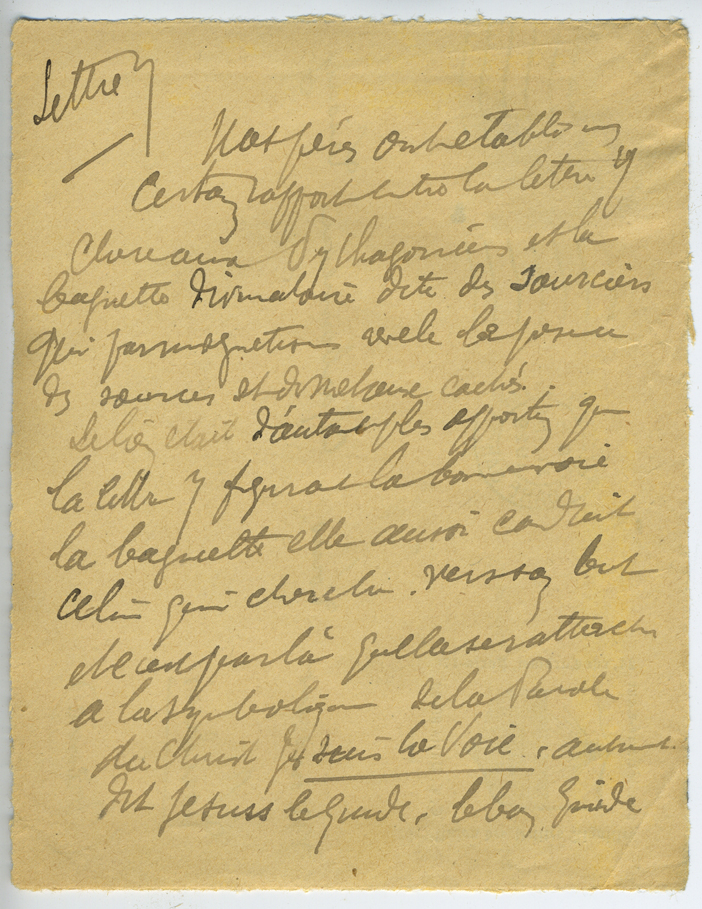 Lettre Y
Nos pères ont etabli un
certain rapport entre la lettre Y
chere aux Pythagoriciens et la
baguette divinatoire dite des Sourciers
qui par magnetisme revele la presence
des sources et des metaux cachés.
Le lien etait d'autant plus apportun que
la lettre Y figurant la bonne voie
la baguette elle aussi conduit
celui qui cherche vers son but
et c'est par là qu'elle se rattache
a la symbolique de la Parole
du Christ Je suis la Voie, autrement
dit Jesus le guide, le bon Guide